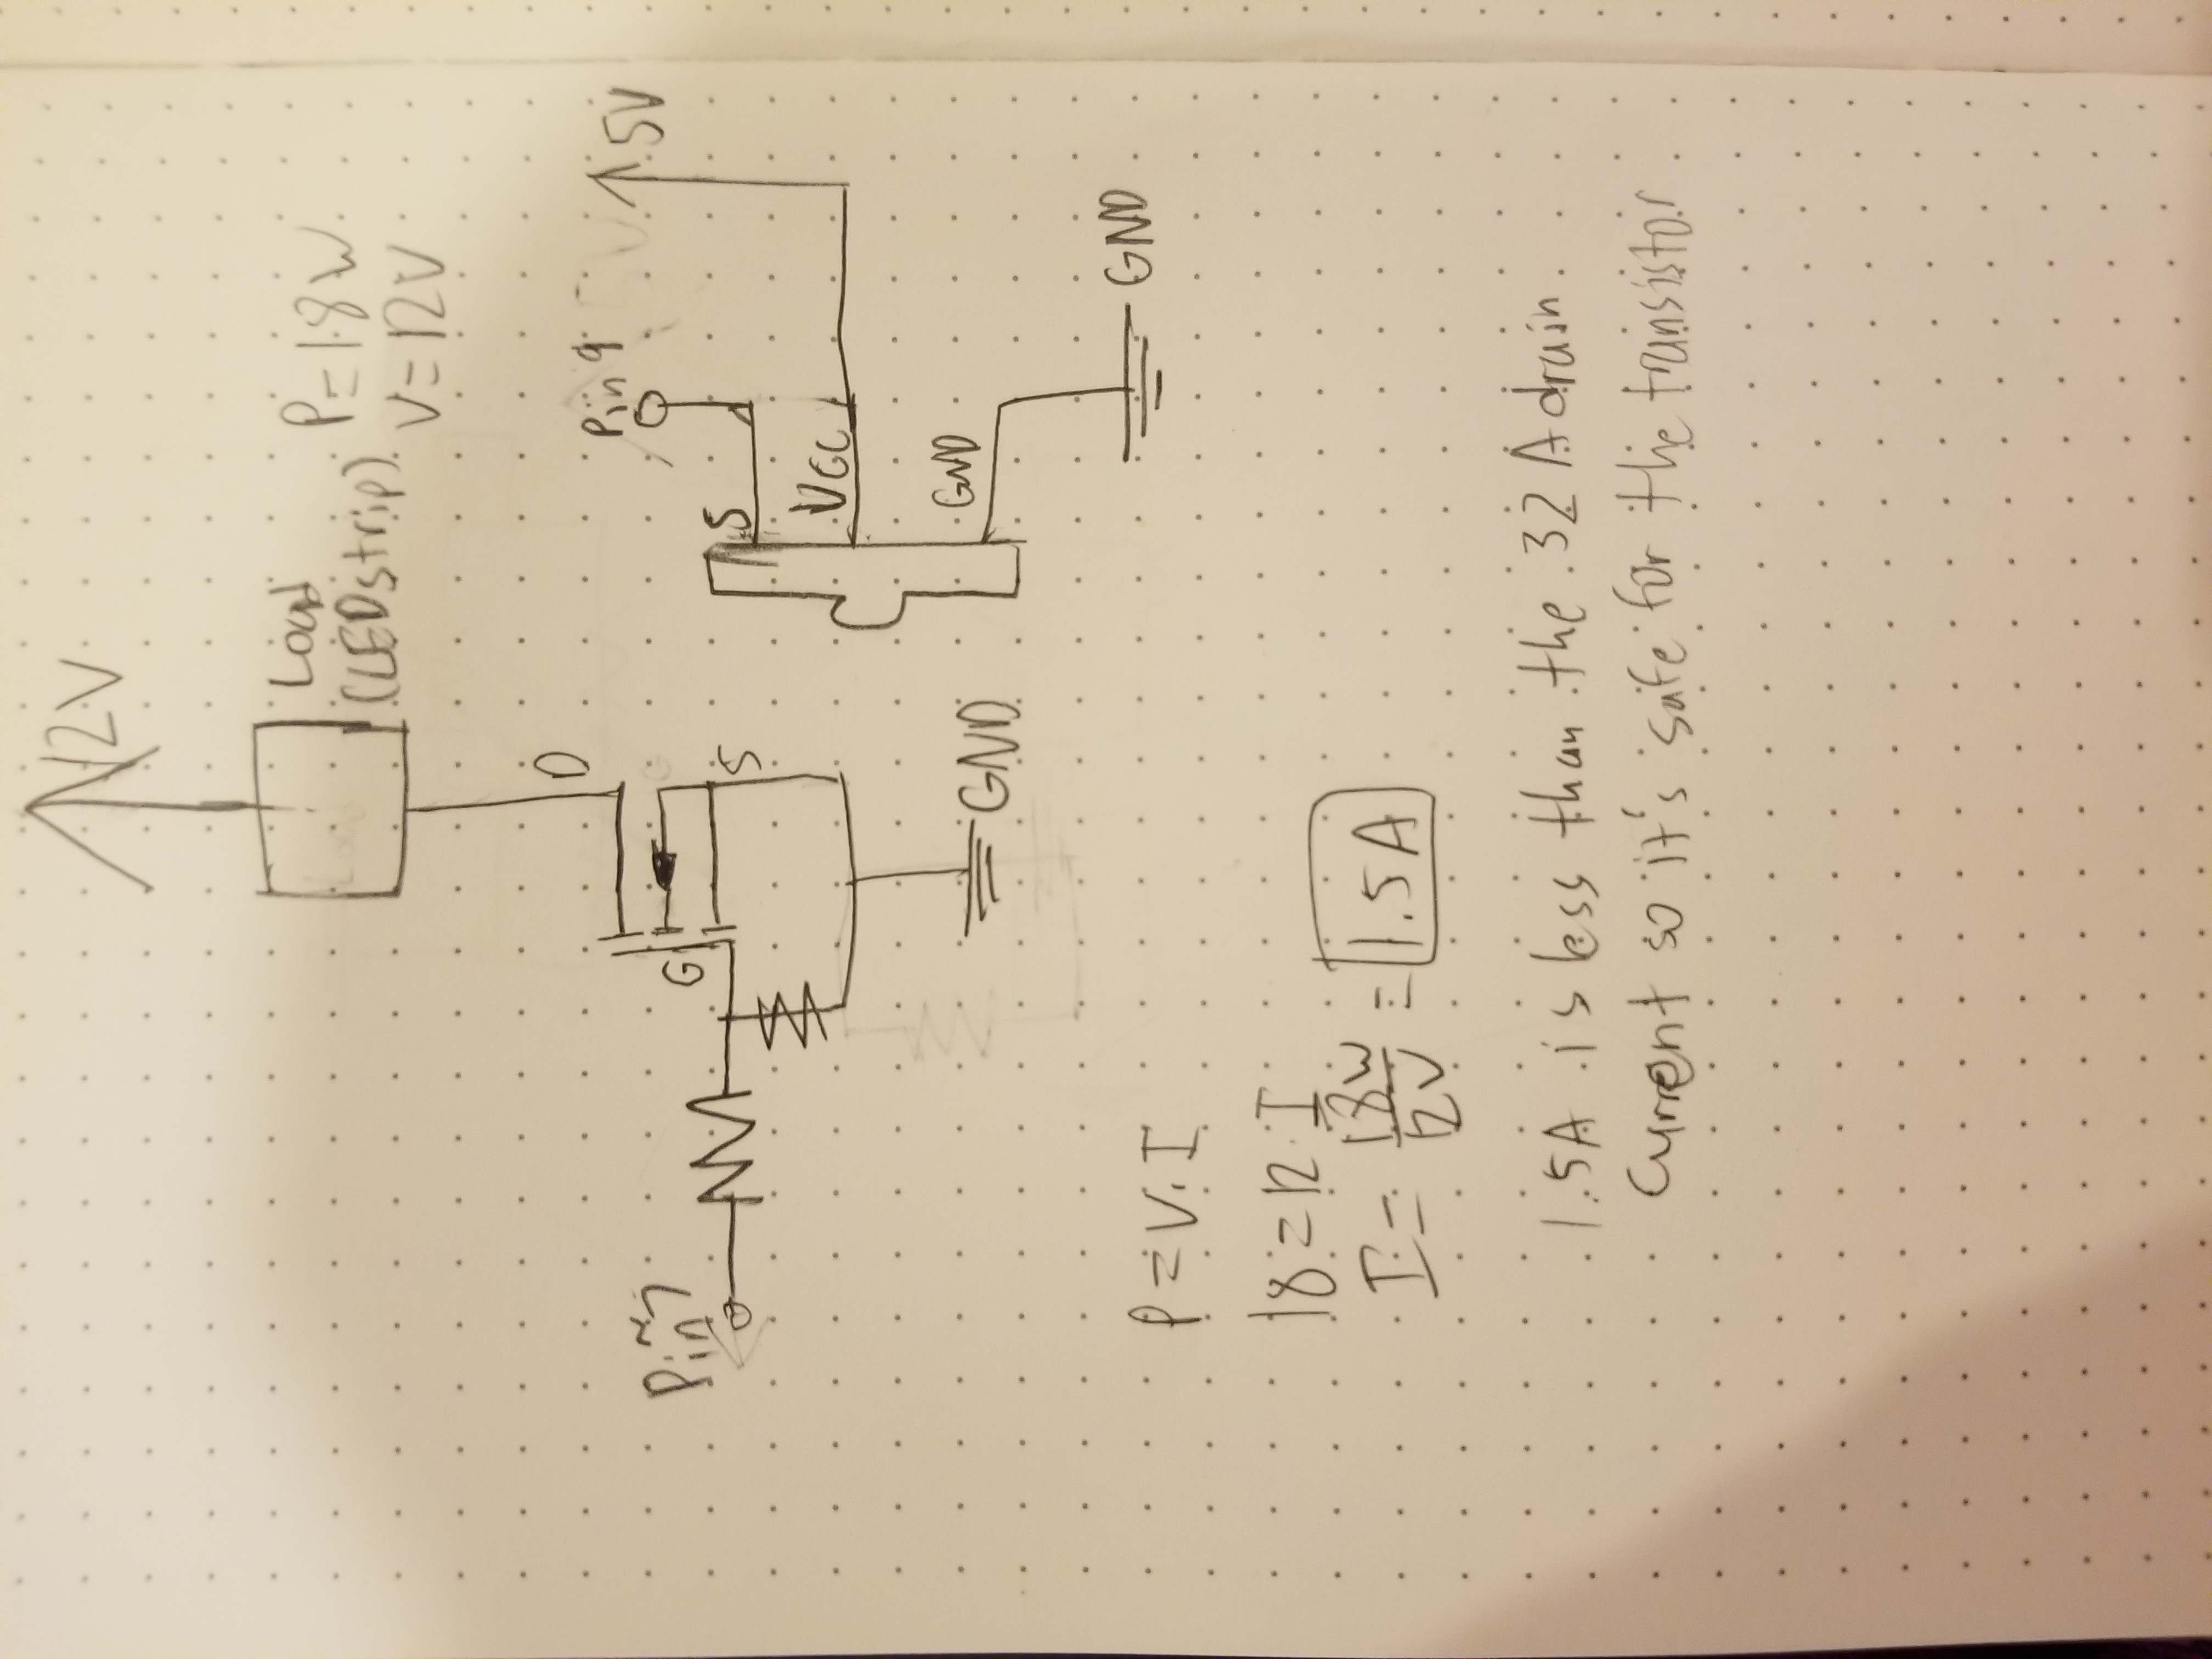 12V
Load
(LED strip)
P=18W
V=12V
D
Pin 9
5V
Pin ~7
G
S
S
VCC
GND
GND
GND
P=V·I
18=12·I
I= 18W/12V = 1.5A
1.5A is less than the 32 A drain
current so it's safe for the transistor